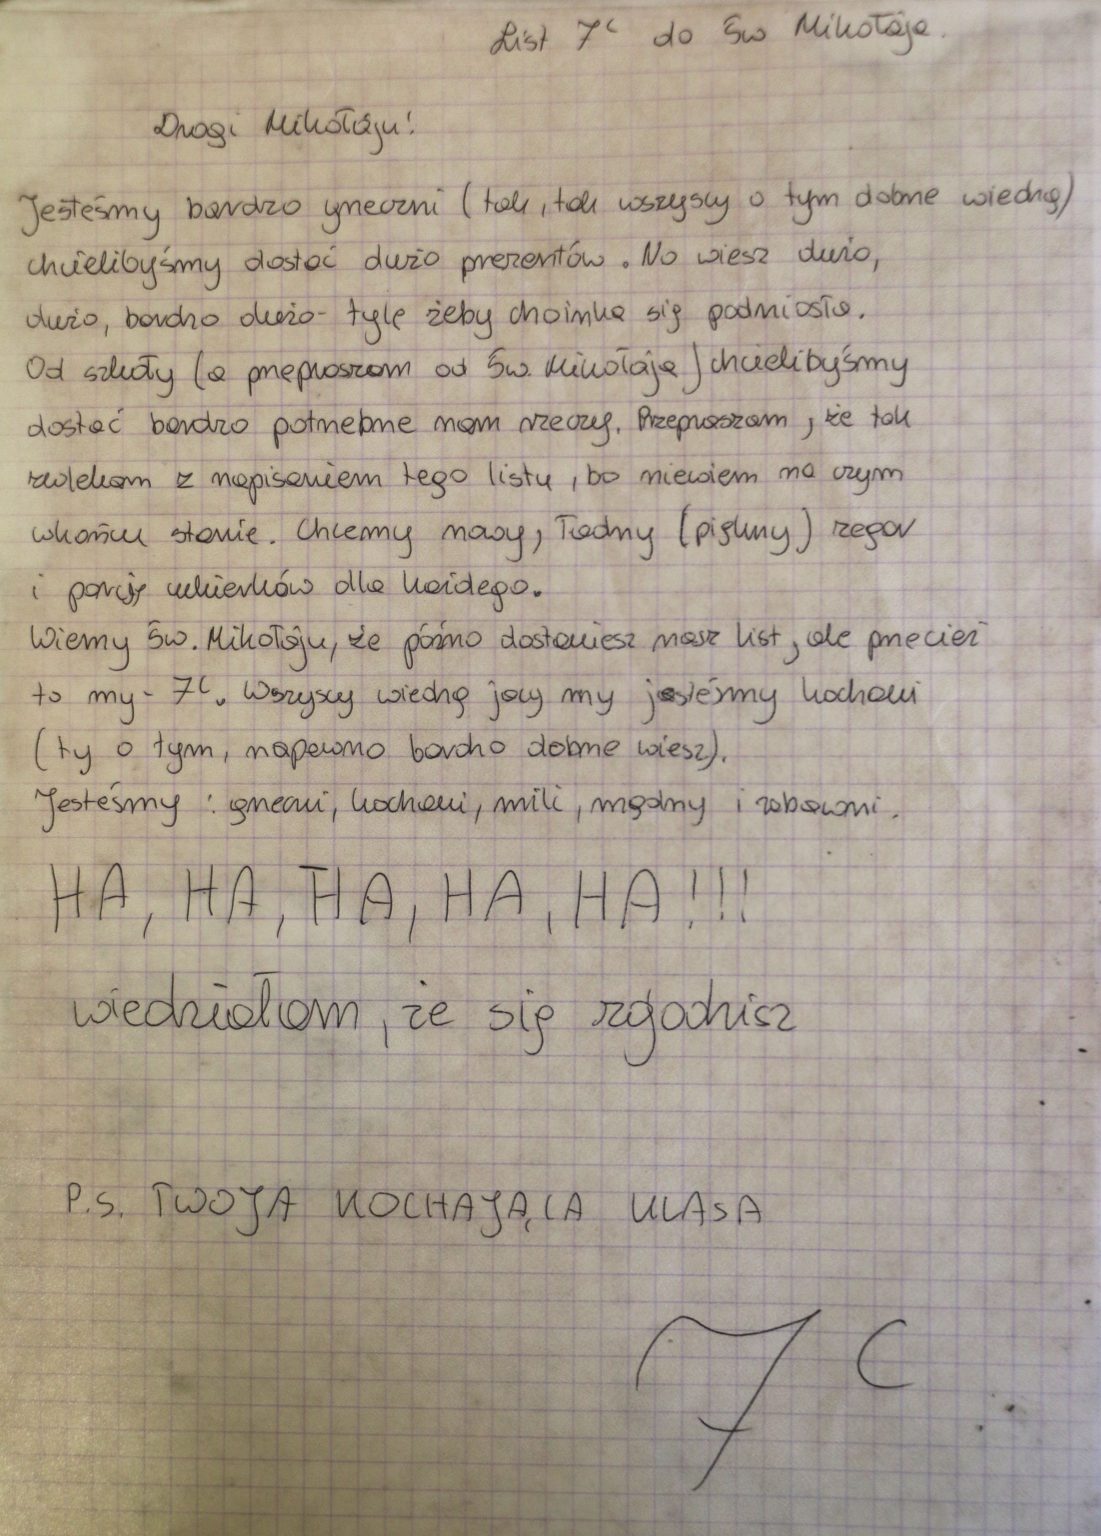 List 7c do Św Mikołaja.
Drogi Mikołaju!
Jesteśmy bardzo grzeczni (tak, tak wszyscy o tym dobrze wiedzą)
chcielibyśmy dostać dużo prezentów. No wiesz dużo,
dużo, bardzo dużo- tyle żeby choinka się podniosła.
Od szkoły (a przepraszam od Św. Mikołaja) chcielibyśmy
dostać bardzo potrzebne nam rzeczy. Przepraszam, że tak
zwlekam z napisaniem tego listu, bo niewiem na czym
wkońcu stanie. Chcemy nowy, ładny (piękny) zegar
i porcję cukierków dla każdego.
Wiemy Św. Mikołaju, że późno dostaniesz nasz list, ale przecież
to my- 7c. Wszyscy wiedzą jacy my jesteśmy kochani
(ty o tym, napewno bardzo dobrze wiesz).
Jesteśmy: grzeczni, kochani, mili, mądrzy i zabawni.
HA, HA, HA, HA, HA!!!
wiedziałam, że się zgodzisz
P.S. TWOJA KOCHAJĄCA KLASA
7 C